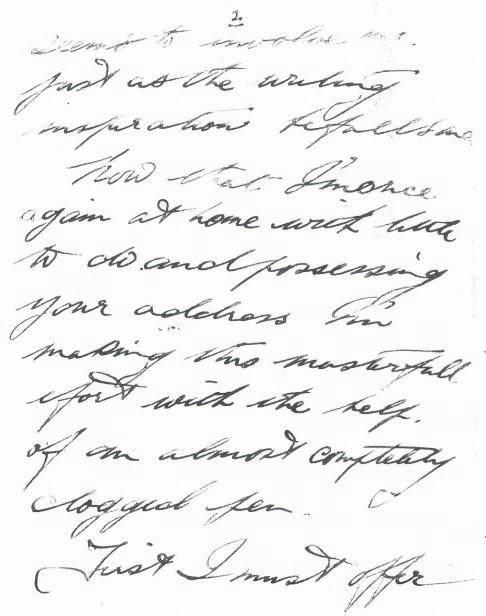 2
seems to involve me.
just as the writing
inspiration befalls me
Now that I'm once
again at home with little
to do and possessing
your address I'm
making this masterfull
efort with the help.
of an almost completely
clogged pen
First I must offer